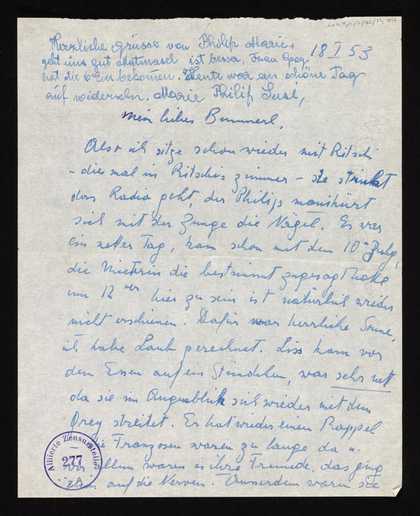 Herzliche Grüsse von Philip Marie,
geht uns gut ist besser, Frau
hat die bekommen. Heute war ein schöne Tag
auf wiedersehn. Marie Philip
18 I 53
mein liebes Bummerl,
Also ich sitze schon wieder mit Ritschi
- diesmal in Ritschis Zimmer - sie strickt
das Radio geht, der Philip manikürt
sich mit der Zunge die Nägel. Es war
ein netter Tag, kam schon mit dem 10h Zug,
die Mieterin die bestimmt zugesagt hatte
um 12 hier zu sein ist natürlich wieder
nicht erschienen. Dafür war herrliche Sonne,
ich habe Laub gerechnet. Liss kam vor
dem Essen auf ein Stündchen, war sehr nett
da sie im Augenblick sich wieder mit dem
Orey streitet. Er hat wieder einen Rappel
die Franzosen waren zu lange da u.
vor allem waren es ihre Freunde, das ging
ihm auf die Nerven. Ausserdem waren sie
Alliierte Zensurstelle
277